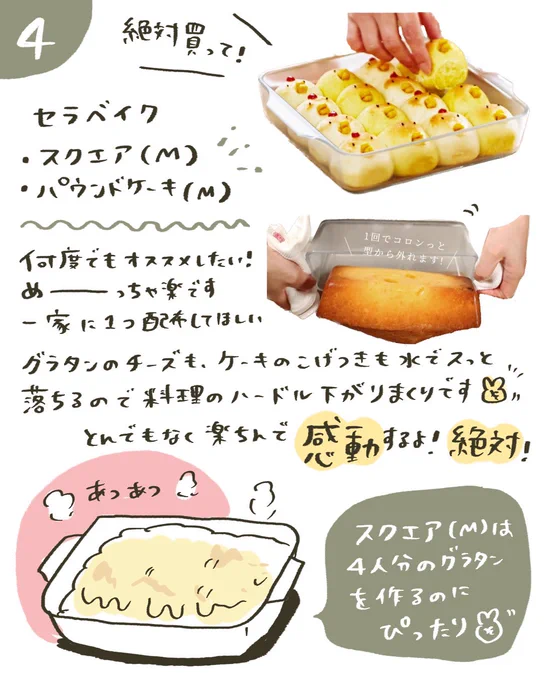 4
絶対買って!
セラベイク
・スクエア(M)
・パウンドケーキ(M)
1回でコロンっと
型から外れます!
何度でもオススメしたい!
め━━っちゃ楽です
一家に1つ配布してほしい
グラタンのチーズも、ケーキのこげつきも水でスっと
落ちるので料理のハードル下がりまくりです
とんでもなく楽ちんで感動するよ!絶対!
あつあつ
スクエア(M)は
4人分のグラタン
を作るのに
ぴったり